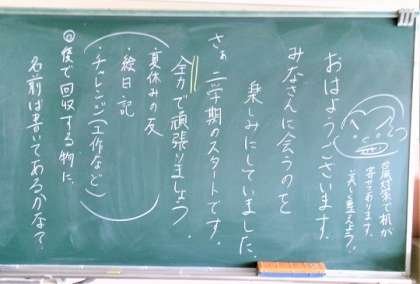 おはようございます。
みなさんに会うのを
楽しみにしていました。
さぁ二学期のスタートです。
全力で頑張りましょう。
・夏休みの友
・絵日記
・チャレンジ(工作など)
後で回収する物に、
名前は書いてあるかな?
台風対策で机が
寄せてあります。